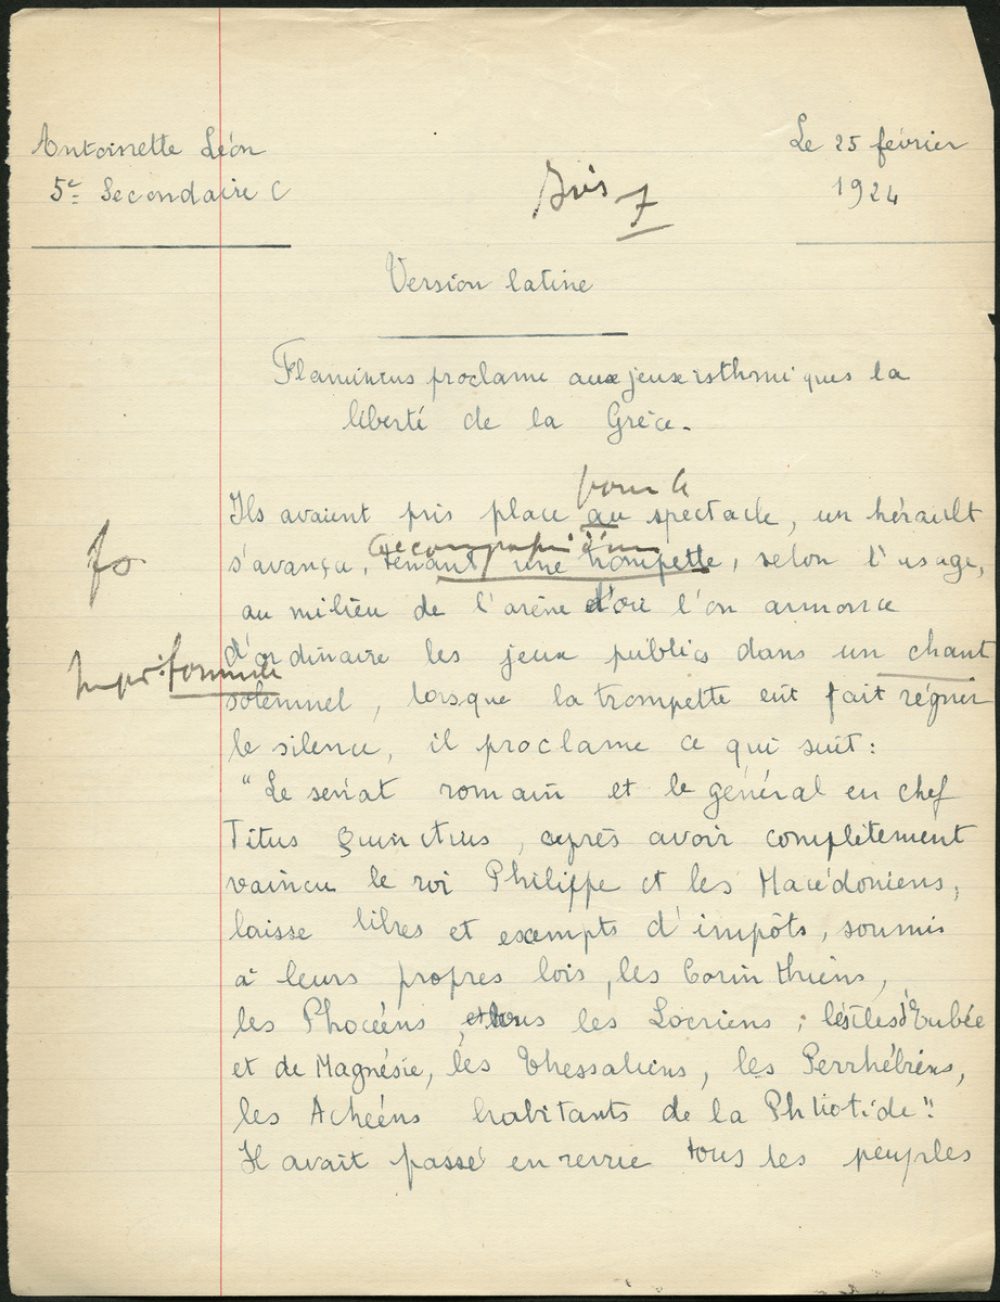 Antoinette Léon
Le 25 février
5e Secondaire C
1924
7
Version latine
Flamininus proclame aux jeux isthmiques la
liberté de la Grèce.
pour le
Ils avaient pris place au spectacle, un hérault
accompagné d'un
fs
s'avança, tenant une trompette, selon l'usage,
au milieu de l'arène d'où l'on annonce
d'ordinaire les jeux publics dans un chant
impr. formule
solennel, lorsque la trompette eût fait régner
le silence, il proclame ce qui suit :
"Le sénat romain et le général en chef
Titus Quinctius, après avoir complètement
vaincu le roi Philippe et les Macédoniens,
laisse libres et exempts d'impôts, soumis
à leurs propres lois, les Corinthiens,
les Phocéens, et tous les Locriens ; les îles d'Eubée
et de Magnésie, les Thessaliens, les Perrhébiens,
les Achéens habitants de la Phtiotide".
Il avait passé en revue tous les peuples